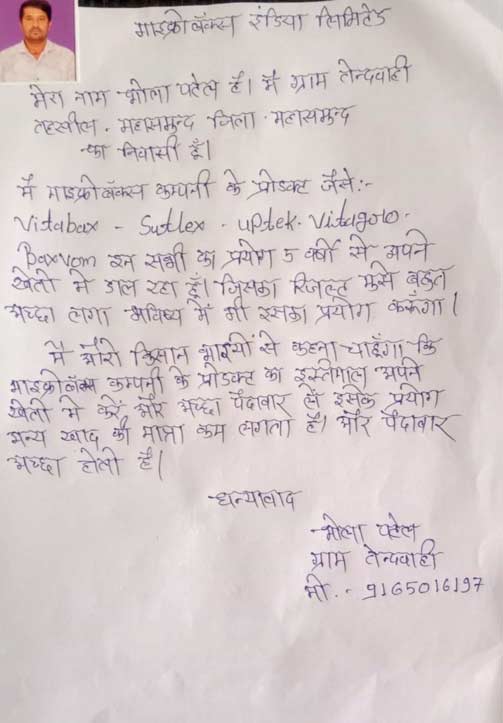 माइक्रोबॅक्स इंडिया लिमिटेड
मेरा नाम भोला पटेल है। मैं ग्राम तेन्दवाही
तहसील - महासमुन्द जिला - महासमुन्द
का निवासी हूँ।
मैं माइक्रोबॅक्स कम्पनी के प्रोडक्ट जैसे:-
Vitabax - Sutlex - uptek - Vitagold -
Baxvam इन सभी का प्रयोग 5 वर्षो से अपने
खेती में डाल रहा हूँ। जिसका रिजल्ट मुझे बहुत
अच्छा लगा भविष्य में भी इसका प्रयोग करूंगा।
मैं औरो किसान भाइयों से कहना चाहूँगा कि
माइक्रोबॅक्स कम्पनी के प्रोडक्ट का इस्तेमाल अपने
खेती में करें और अच्छा पैदावार लें इसके प्रयोग
अन्य खाद की मात्रा कम लगता है। और पैदावार
अच्छा होती है।
धन्यावाद
भोला पटेल
ग्राम तेन्दवाही
मो. - 9165016197